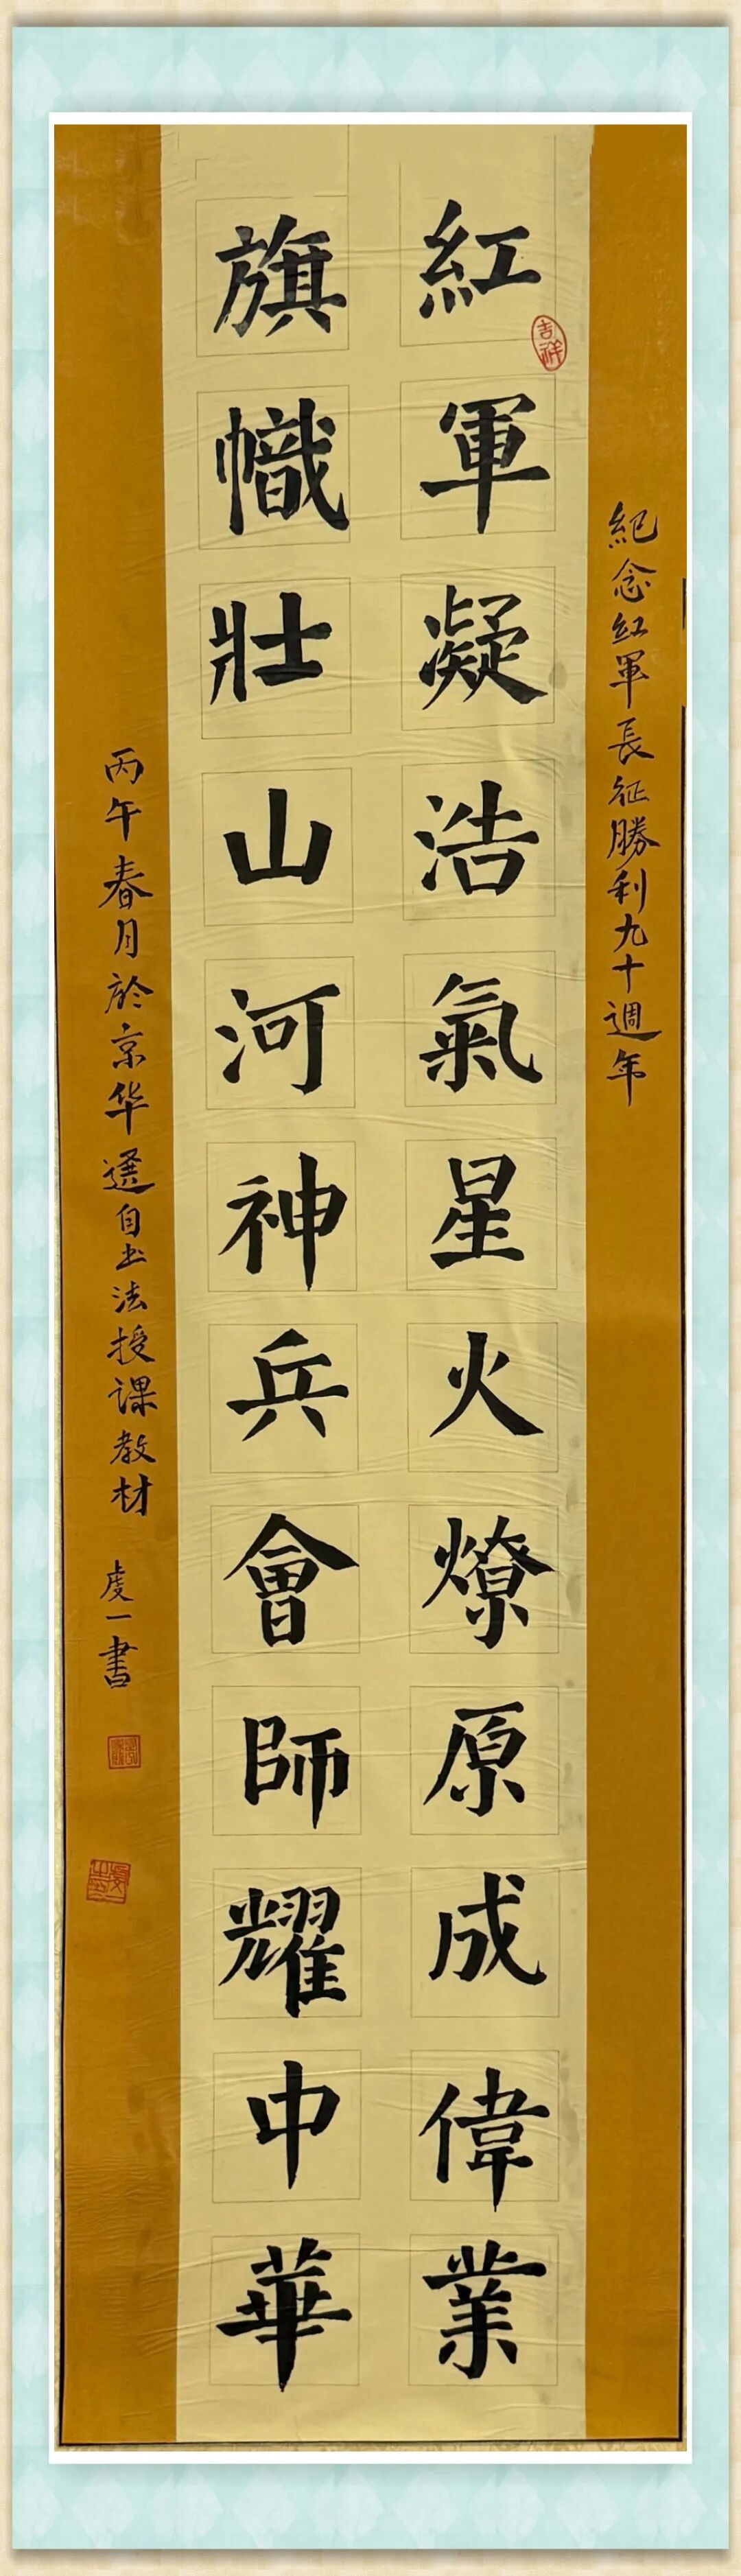 紀念红軍長征勝利九十週年
紅軍凝浩氣星火燎原成偉業
吉祥
旗幟壯山河神兵會師耀中華
丙午春月於京华選自书法授课教材
虔一書